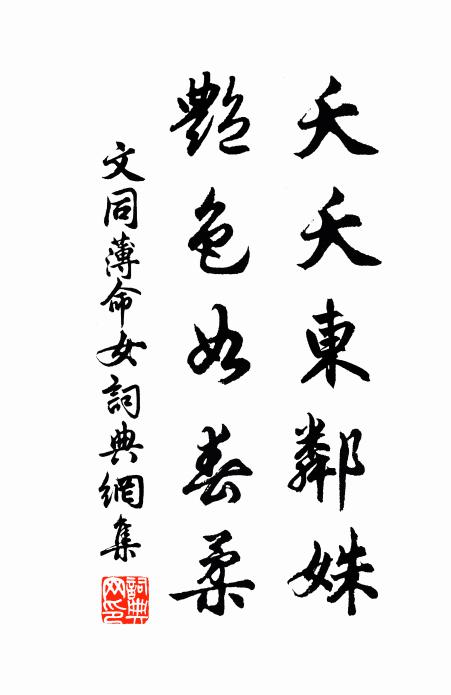 夭夭東鄰姝
艷色如春柔
文同薄命女詞典網集
詞典网印